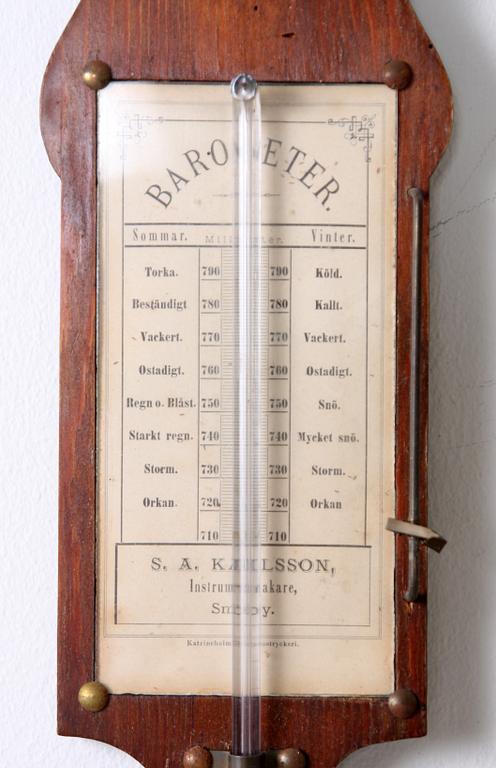 BAROMETER.
Sommar. Millimeter. Vinter.
Torka. 790 790 Köld.
Beständigt 780 780 Kallt.
Vackert. 770 770 Vackert.
Ostadigt. 760 760 Ostadigt.
Regn o. Blåst. 750 750 Snö.
Starkt regn. 740 740 Mycket snö.
Storm. 730 730 Storm.
Orkan. 720 720 Orkan
710 710
S. A. KARLSSON,
Instrumentmakare,
Katrineholm